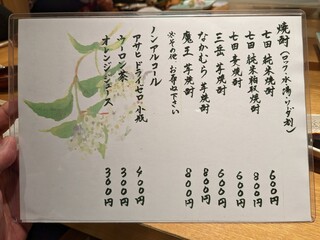 焼酎（ロック・水湯・ソーダ割）
七田 純米焼酎 600円
七田 純米粕取焼酎 800円
七田 麦焼酎 600円
三岳 芋焼酎 600円
なかむら 芋焼酎 800円
魔王 芋焼酎 800円
※その他 お尋ね下さい
ノンアルコール
アサヒ ドライゼロ小瓶 400円
ウーロン茶 300円
オレンジジュース 300円